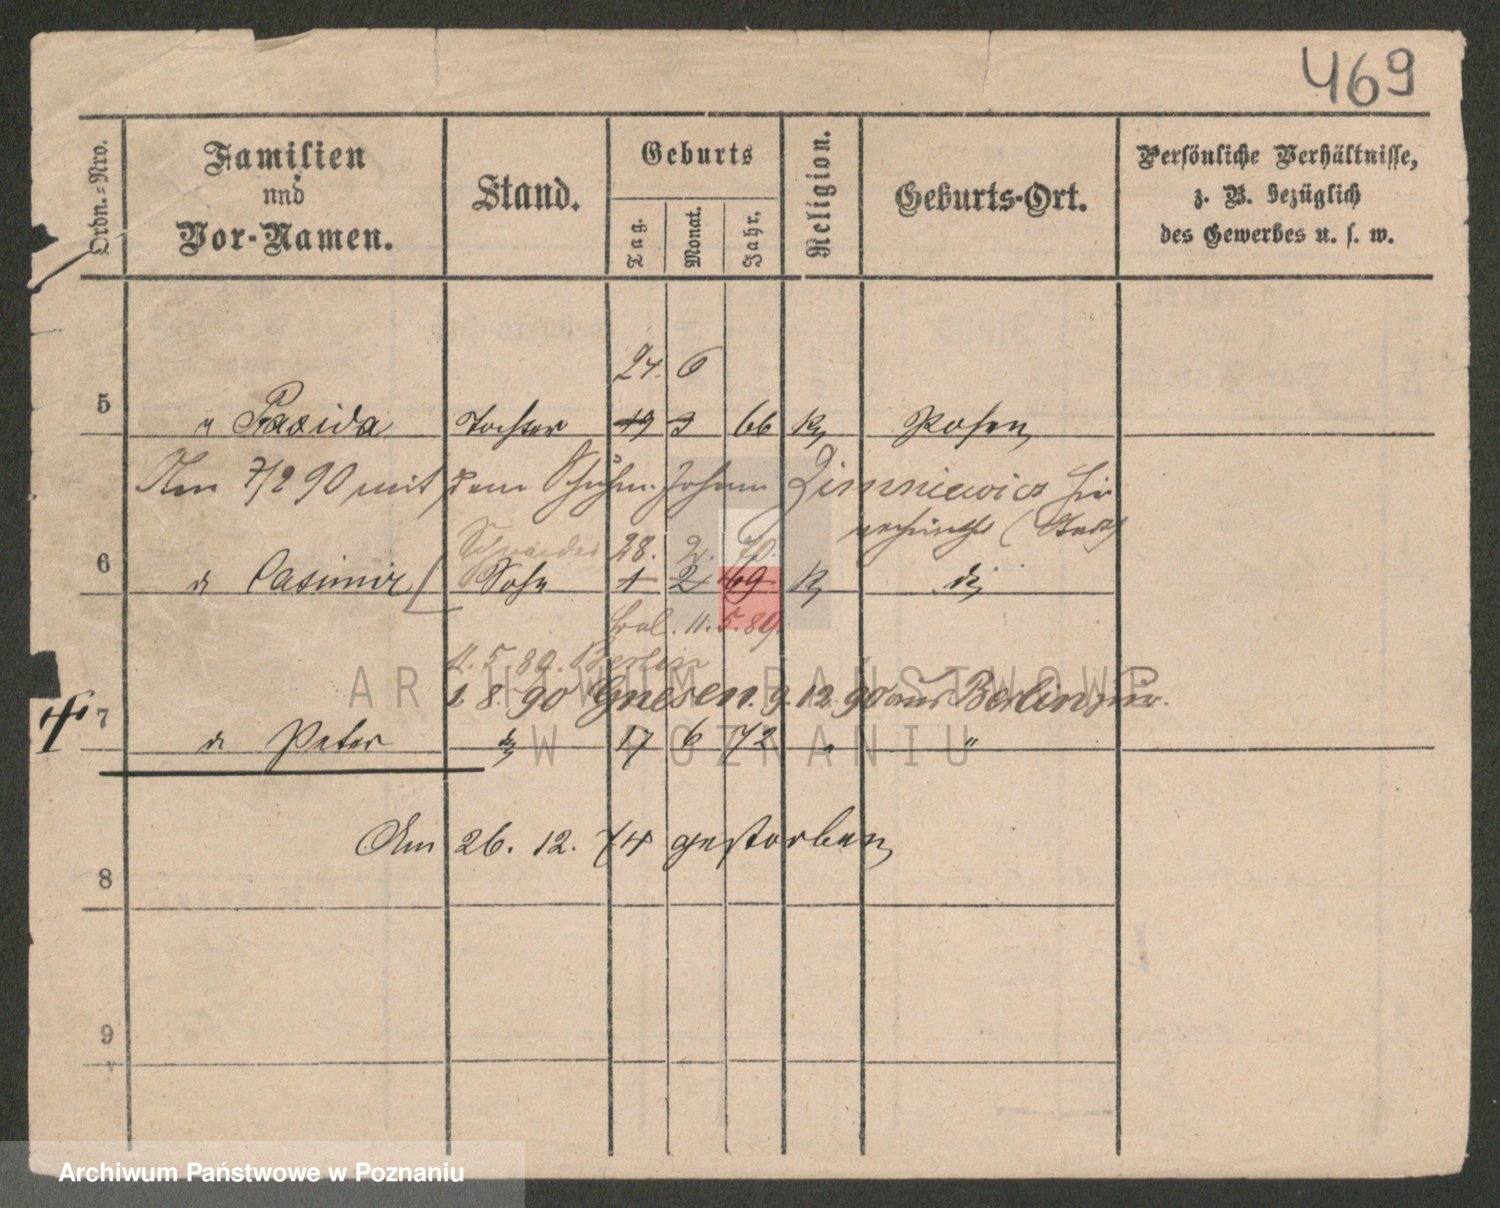 469
Ordn.=Nro.
Familien
und
Vor-Namen.
Stand.
Geburts
Tag.
Monat.
Jahr.
Religion.
Geburts-Ort.
Persönliche Verhältnisse,
z. B. bezüglich
des Gewerbes u. s. w.
24. 6
5 " Praxida Tochter 19 3 66 K Posen
Am 7/2 90 mit dem Schuhm. Johann Zimniewicz hier
verheirathet (Stadt)
Schneider 28. 2. 70.
6 d Casimir Sohn 1 2 69 K do
Bral. 11. 5. 89.
11. 5. 89. Berlin
1. 8. 90 Gnesen. 9. 12. 90 aus Berlin zur.
7 d Peter do 17 6 72 " "
Am 26. 12. 74 gestorben
8
9
ARCHIWUM PAŃSTWOWE
W POZNANIU
Archiwum Państwowe w Poznaniu